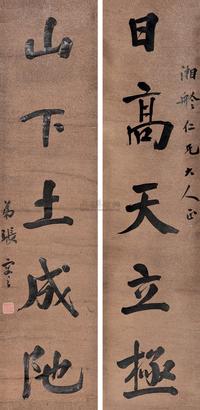 湘舲仁兄大人正
日高天立極
山下土成阤
弟張謇